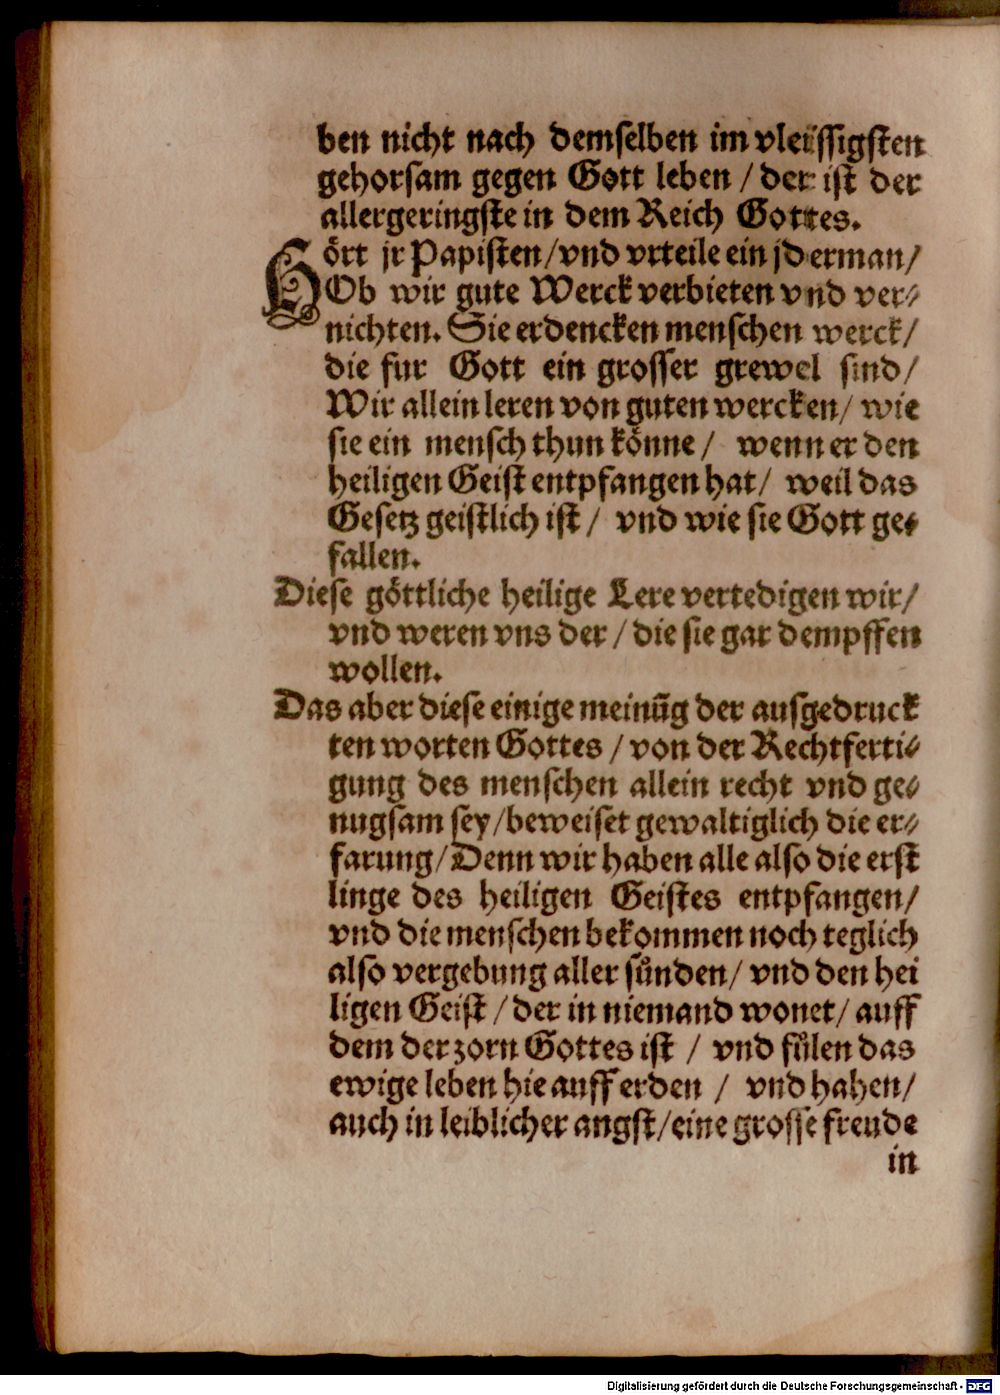 ben nicht nach demselben im vleissigsten
gehorsam gegen Gott leben / der ist der
allergeringste in dem Reich Gottes.
Hört jr Papisten / vnd vrteile ein jderman /
Ob wir gute Werck verbieten vnd ver⸗
nichten. Sie erdencken menschen werck /
die fur Gott ein grosser grewel sind /
Wir allein leren von guten wercken / wie
sie ein mensch thun könne / wenn er den
heiligen Geist entpfangen hat / weil das
Gesetz geistlich ist / vnd wie sie Gott ge⸗
fallen.
Diese göttliche heilige Lere vertedigen wir /
vnd weren vns der / die sie gar dempffen
wollen.
Das aber diese einige meinũg der ausgedruck
ten worten Gottes / von der Rechtferti⸗
gung des menschen allein recht vnd ge⸗
nugsam sey / beweiset gewaltiglich die er⸗
farung / Denn wir haben alle also die erst
linge des heiligen Geistes entpfangen /
vnd die menschen bekommen noch teglich
also vergebung aller sünden / vnd den hei
ligen Geist / der in niemand wonet / auff
dem der zorn Gottes ist / vnd fülen das
ewige leben hie auff erden / vnd hahen /
auch in leiblicher angst / eine grosse freude
in
Digitalisierung gefördert durch die Deutsche Forschungsgemeinschaft - DFG